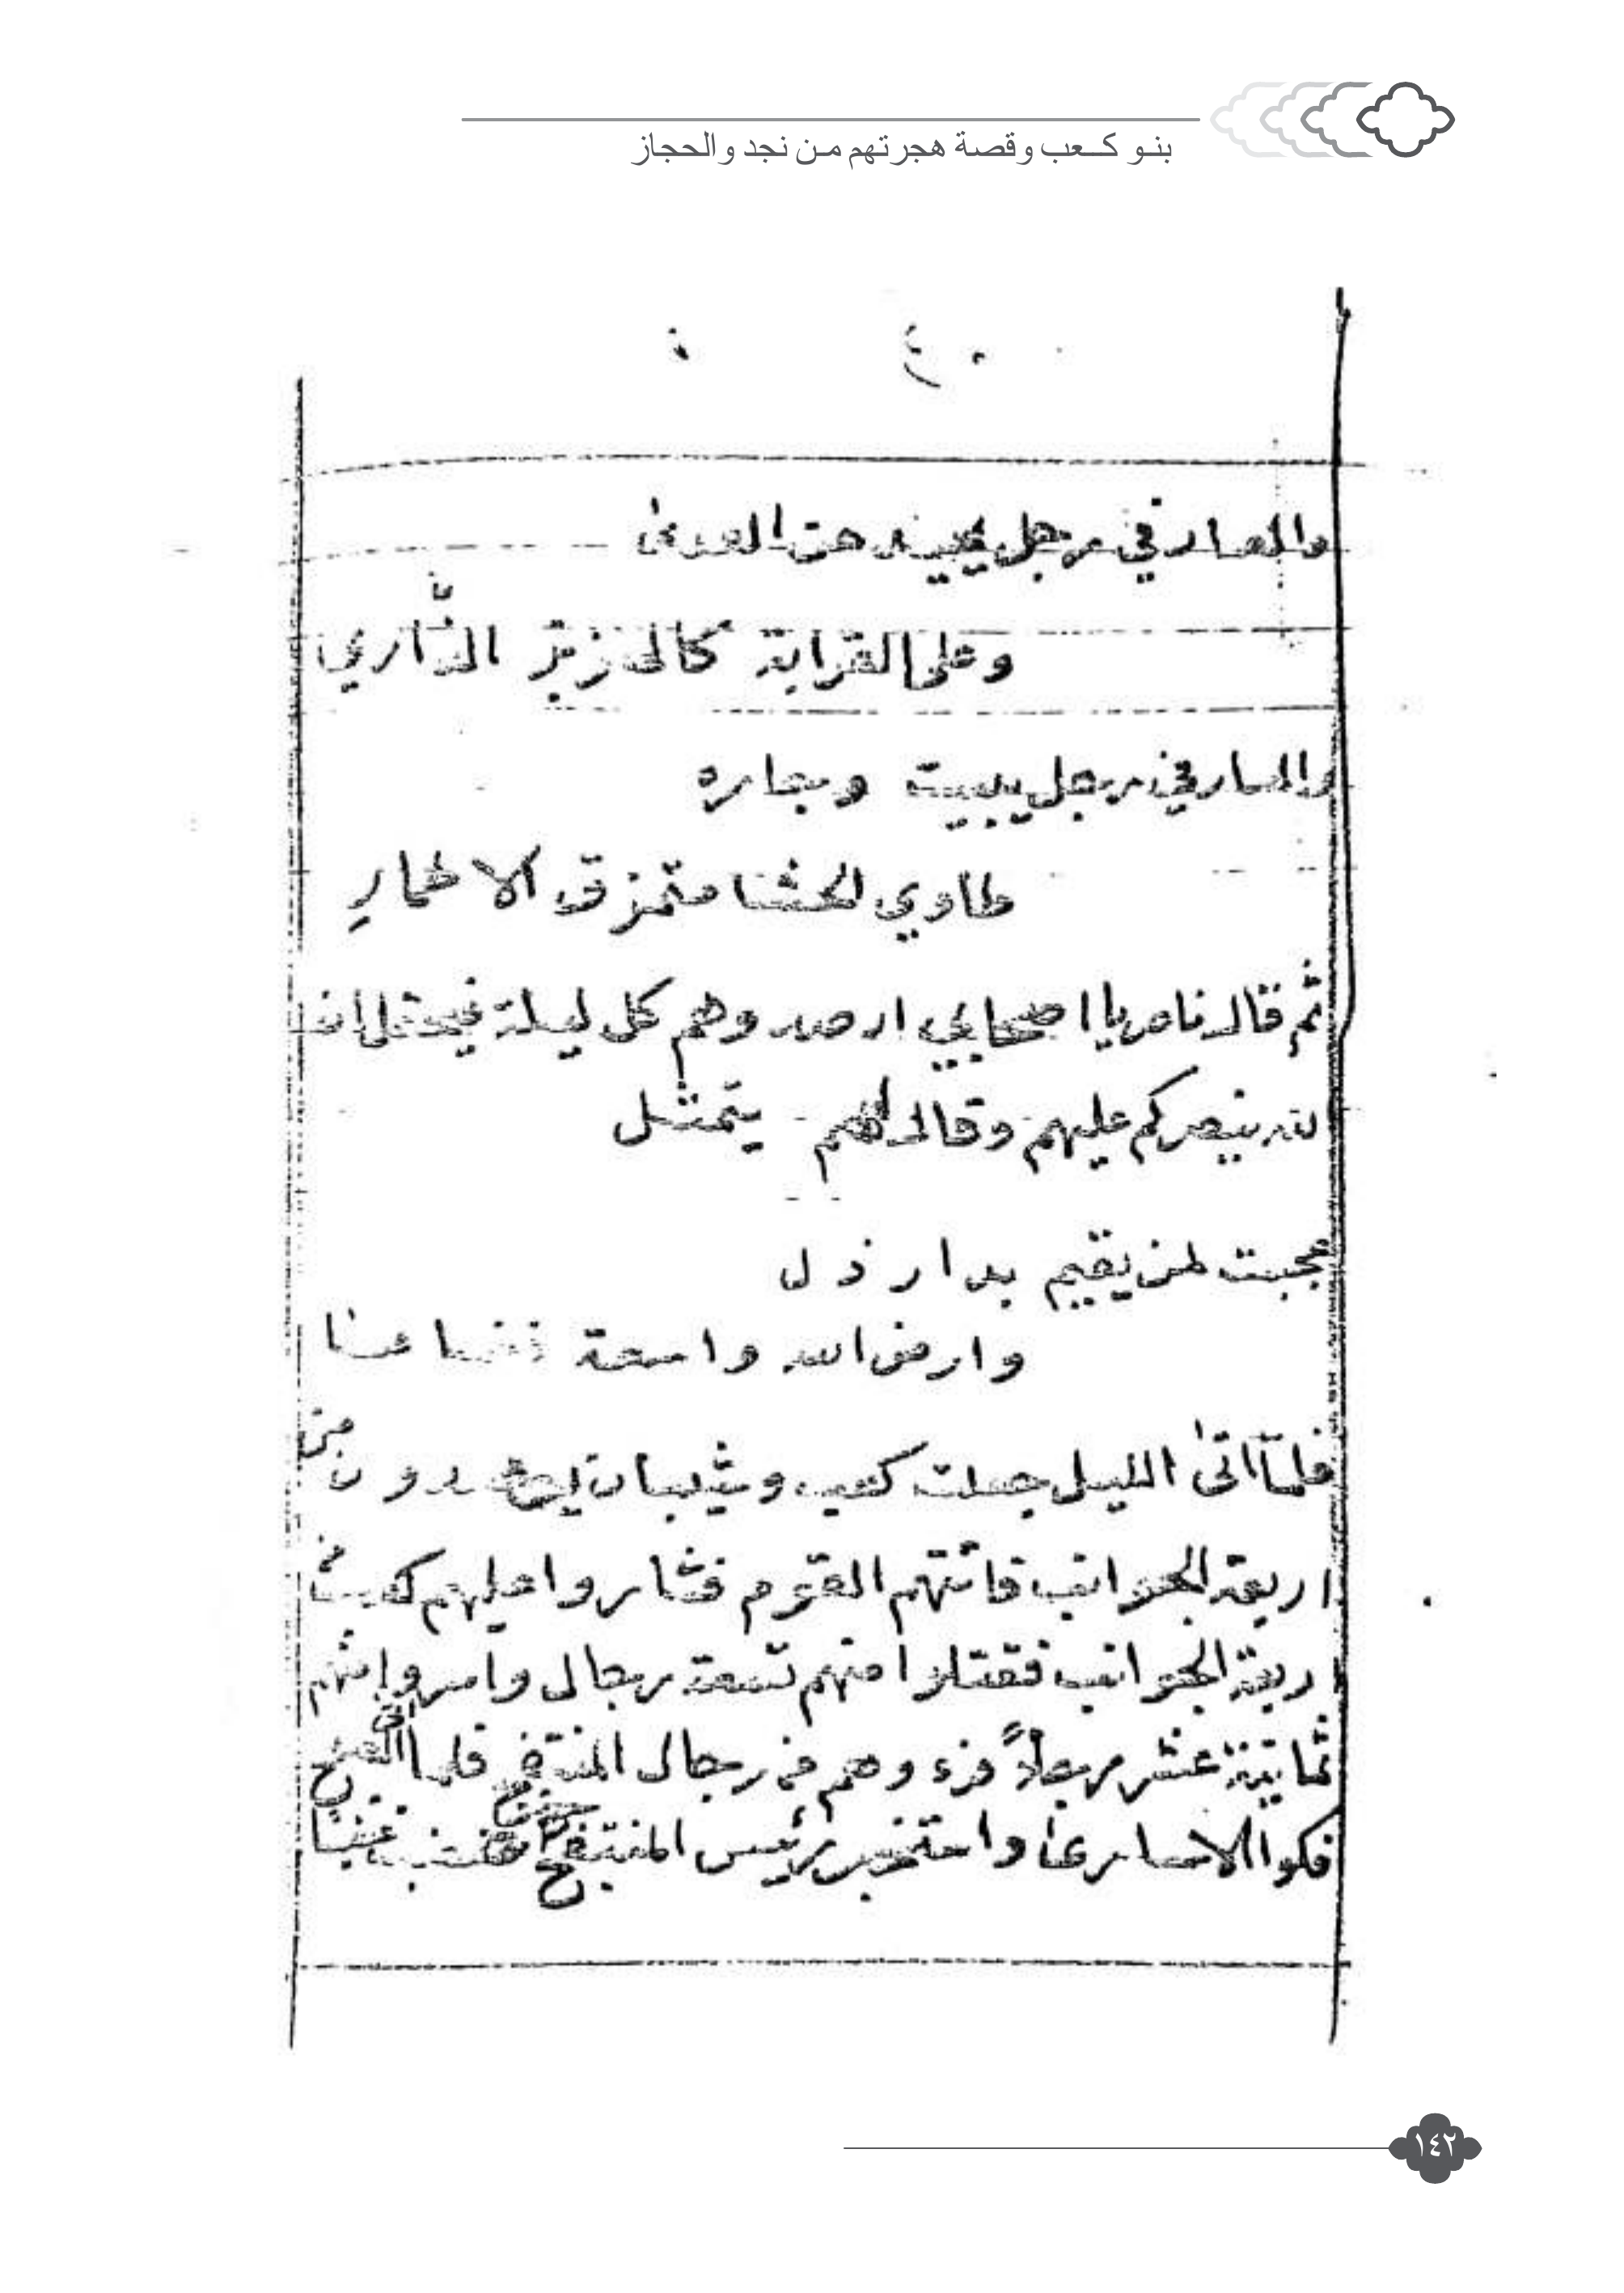 بنو كعب وقصة هجرتهم من نجد والحجاز
والعار في رجل يحيد عن العدى
وعلى القرابة كالهزبر الضاري
والعار في رجل يبيت وجاره
طاوي الحشا متمزق الاطمار
ثم قال ناصر يا اصحابي ارصدوهم كل ليلة
الله ينصركم عليهم وقال لهم يتمثل
عجبت لمن يقيم بدار ذل
وارض الله واسعة فضاها
فلما اتى الليل جعلت كعب وشيبان يرصدون من
اربعة الجوانب فاتتهم القوم فثاروا عليهم كعب من
اربعة الجوانب فقتلوا منهم تسعة رجال واسروا منهم
ثمانية عشر رجلاً وهم من رجال المنتفج فلما اتى الصبح
فكوا الاسارى واستخبر رئيس المنتفج
١٤٢